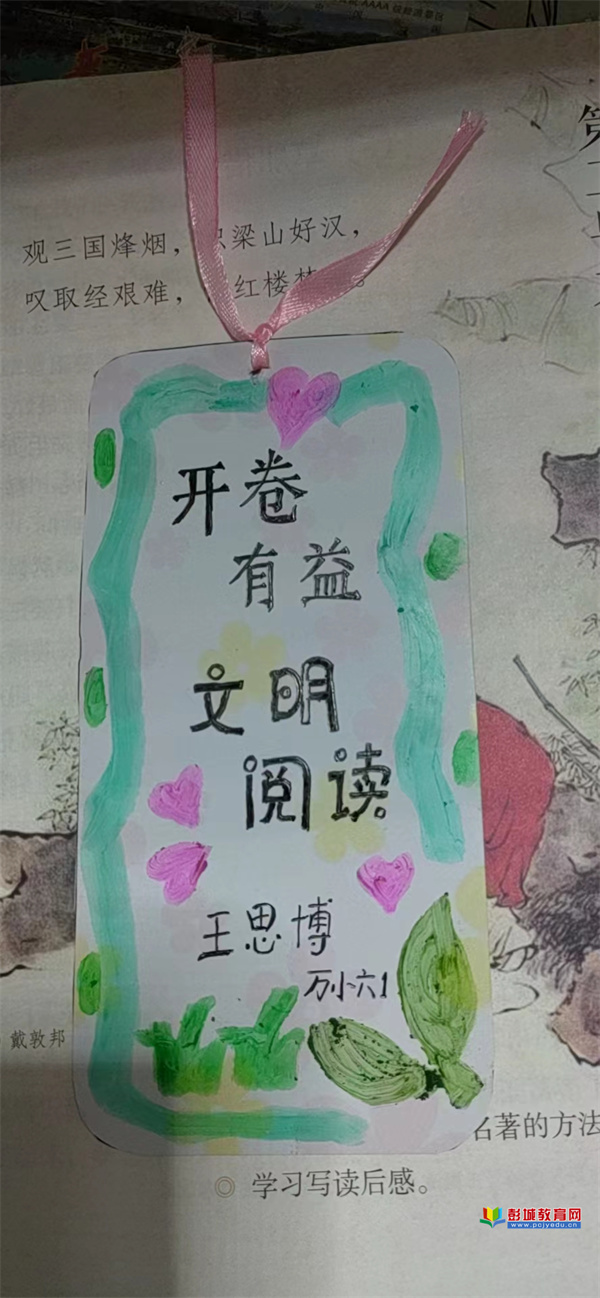 AAAA
第
观三国烽烟，识梁山好汉，
叹取经艰难，红楼梦。
开卷
有益
文明
阅读
王思博
万小六1
戴敦邦
名著的方法
◎ 学习写读后感。
彭城教育网
www.pcjyedu.cn